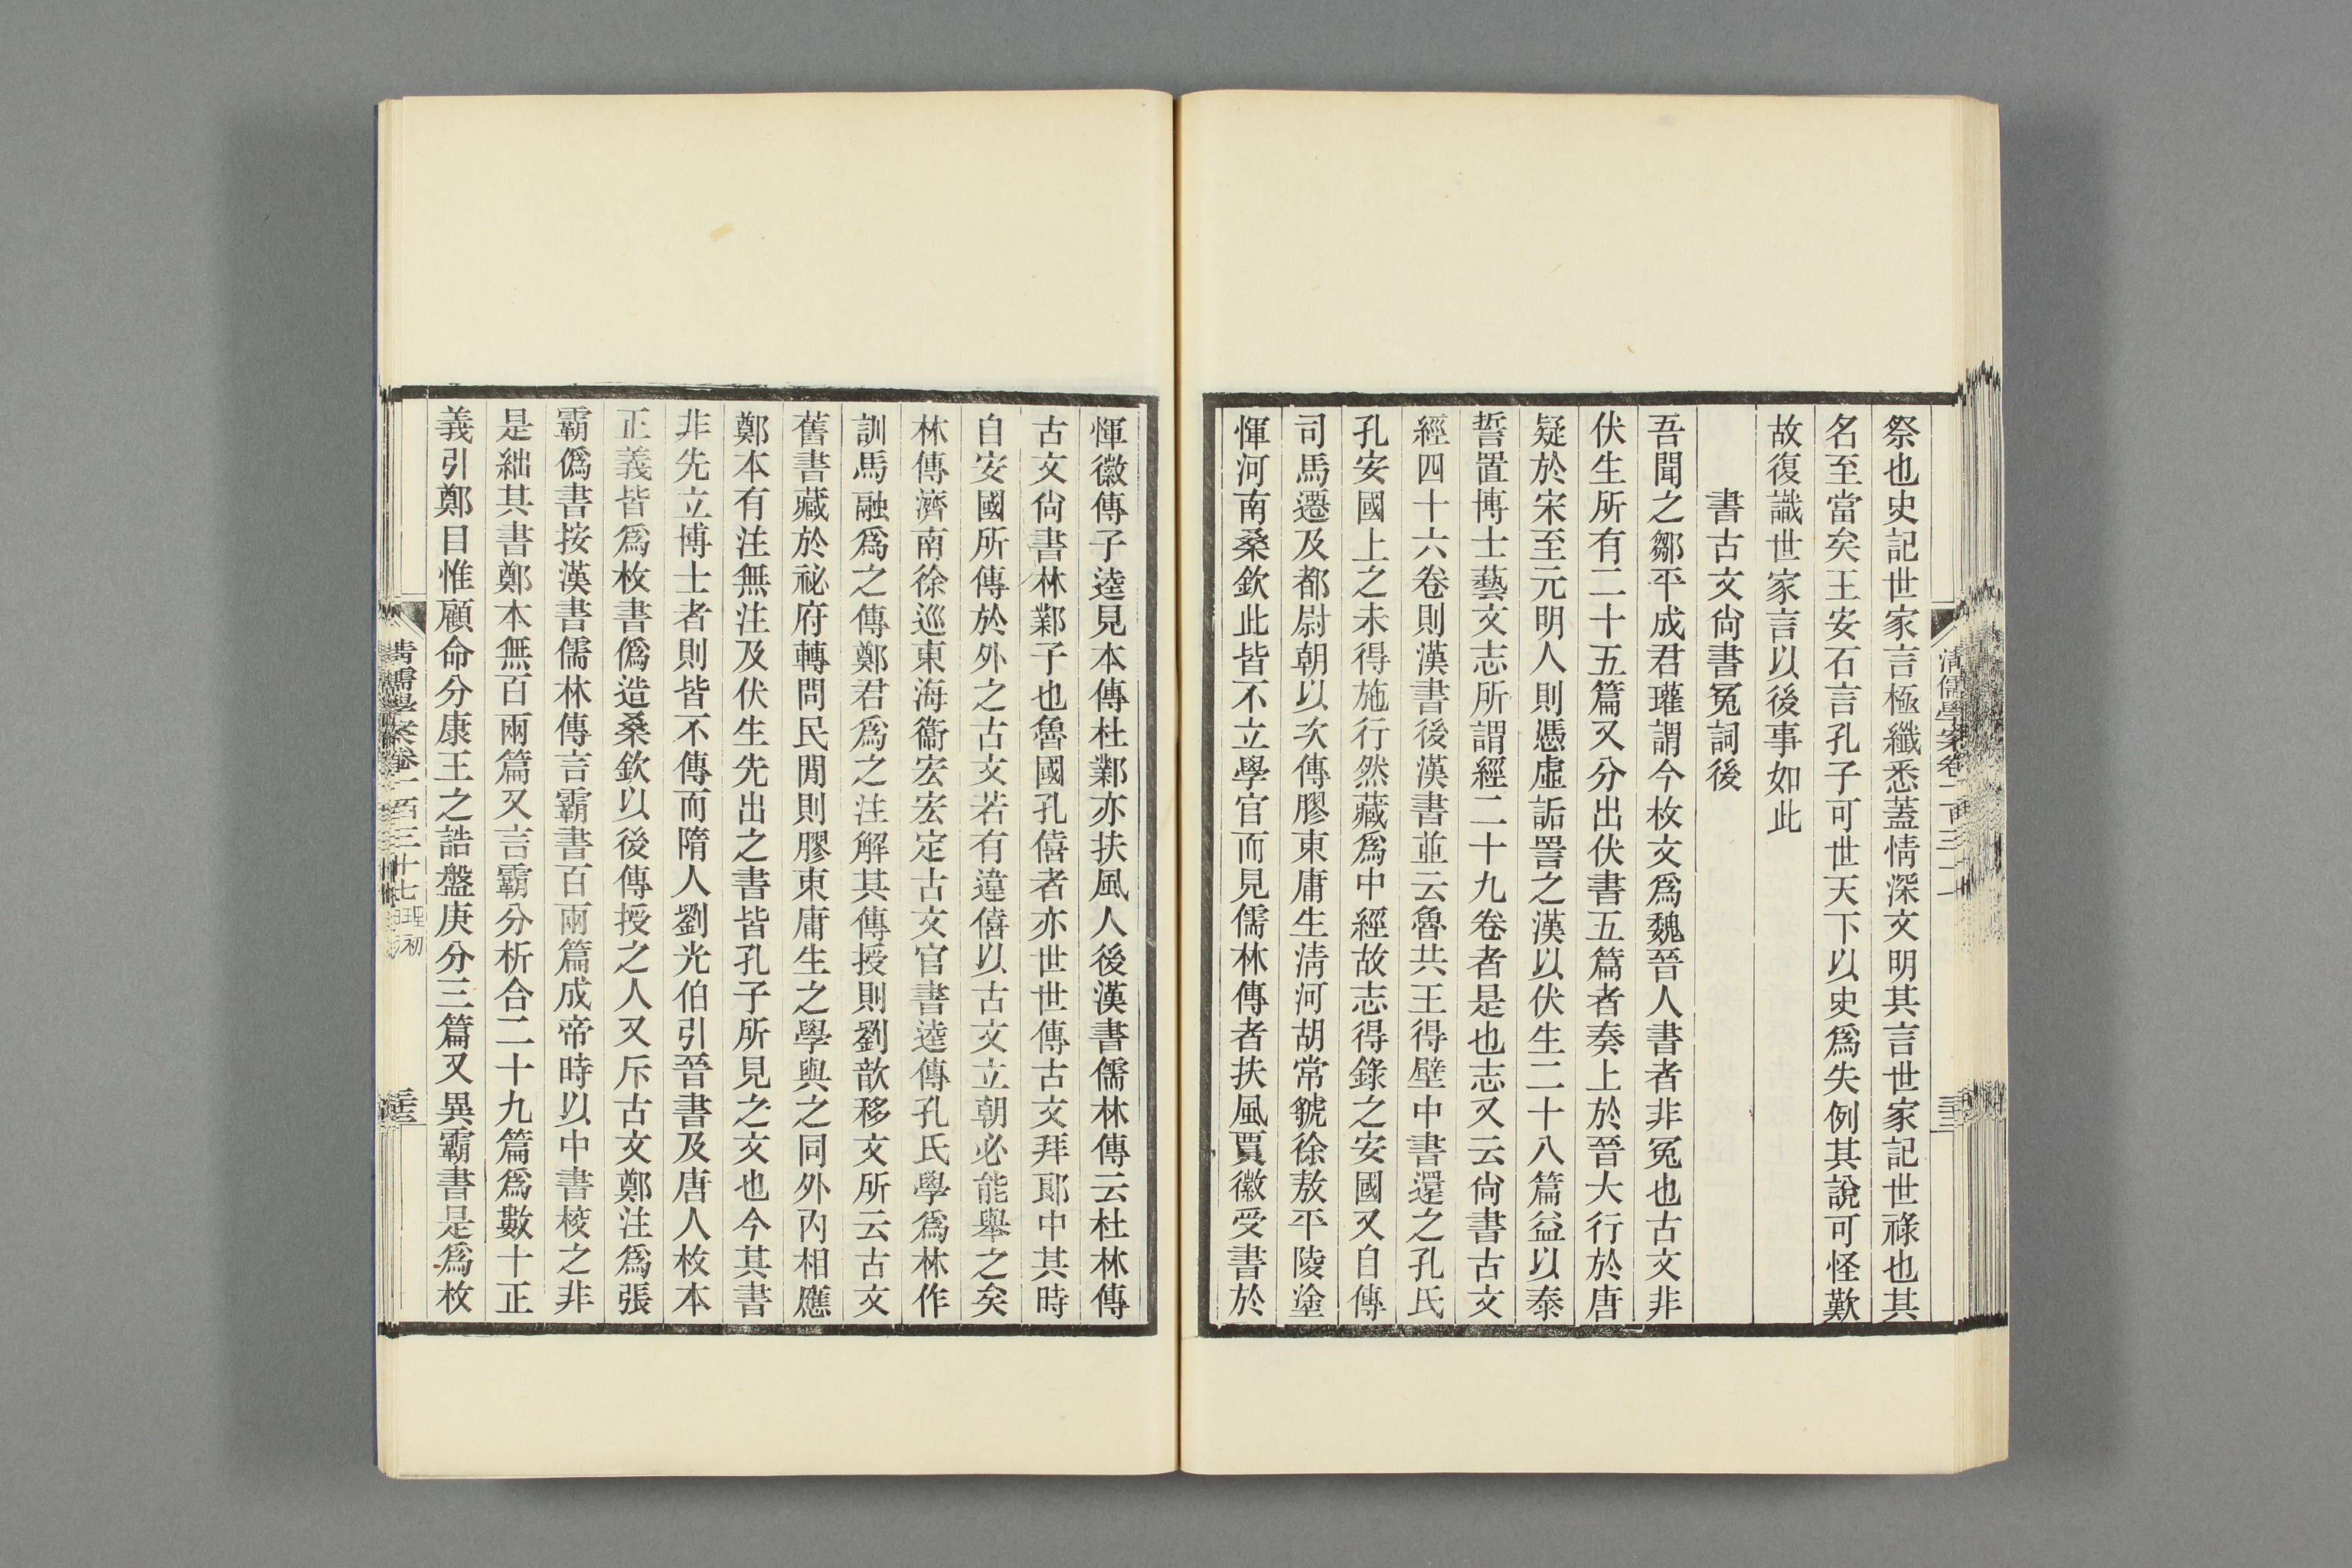 祭也史記世家言極纖悉蓋情深文明其言世家記世祿也其
名至當矣王安石言孔子可世天下以史爲失例其說可怪歎
故復識世家言以後事如此
書古文尙書冤詞後
吾聞之鄒平成君瓘謂今枚文爲魏晉人書者非冤也古文非
伏生所有二十五篇又分出伏書五篇者奏上於晉大行於唐
疑於宋至元明人則憑虛詬詈之漢以伏生二十八篇益以泰
誓置博士藝文志所謂經二十九卷者是也志又云尙書古文
經四十六卷則漢書後漢書並云魯共王得壁中書還之孔氏
孔安國上之未得施行然藏爲中經故志得錄之安國又自傳
司馬遷及都尉朝以次傳膠東庸生淸河胡常虢徐敖平陵塗
惲河南桑欽此皆不立學官而見儒林傳者扶風賈徽受書於
惲徽傳子逵見本傳杜鄴亦扶風人後漢書儒林傳云杜林傳
古文尙書林鄴子也魯國孔僖者亦世世傳古文拜郞中其時
自安國所傳於外之古文若有違僖以古文立朝必能舉之矣
林傳濟南徐巡東海衞宏宏定古文官書逵傳孔氏學爲林作
訓馬融爲之傳鄭君爲之注解其傳授則劉歆移文所云古文
舊書藏於祕府轉問民閒則膠東庸生之學與之同外內相應
鄭本有注無注及伏生先出之書皆孔子所見之文也今其書
非先立博士者則皆不傳而隋人劉光伯引晉書及唐人枚本
正義皆爲枚書僞造桑欽以後傳授之人又斥古文鄭注爲張
霸僞書按漢書儒林傳言霸書百兩篇成帝時以中書校之非
是絀其書鄭本無百兩篇又言霸分析合二十九篇爲數十正
義引鄭目惟顧命分康王之誥盤庚分三篇又異霸書是爲枚
清儒學案卷一百三十七 理初